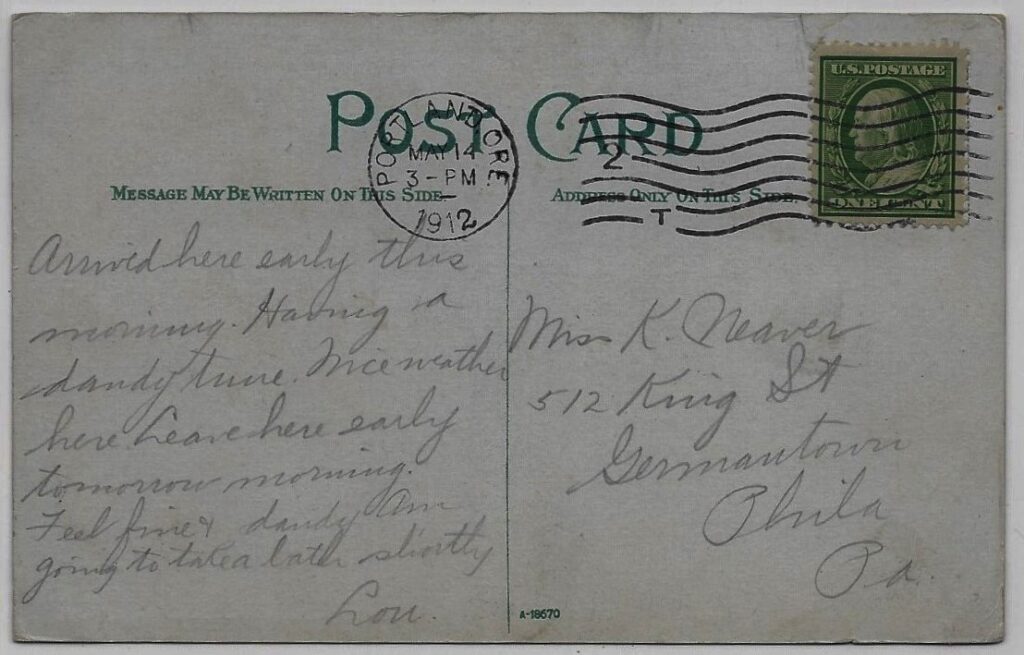 POST CARD
MESSAGE MAY BE WRITTEN ON THIS SIDE
ADDRESS ONLY ON THIS SIDE.
PORTLAND ORE.
MAY 14
3-PM
1912
2
T
U.S. POSTAGE
ONE CENT
Arrived here early this
morning. Having a
dandy time. Nice weather
here Leave here early
tomorrow morning.
Feel fine & dandy Am
going to take a shortly
Lou.
Miss K. Neaver
512 King St
Germantown
Phila
Pa.
A-18670